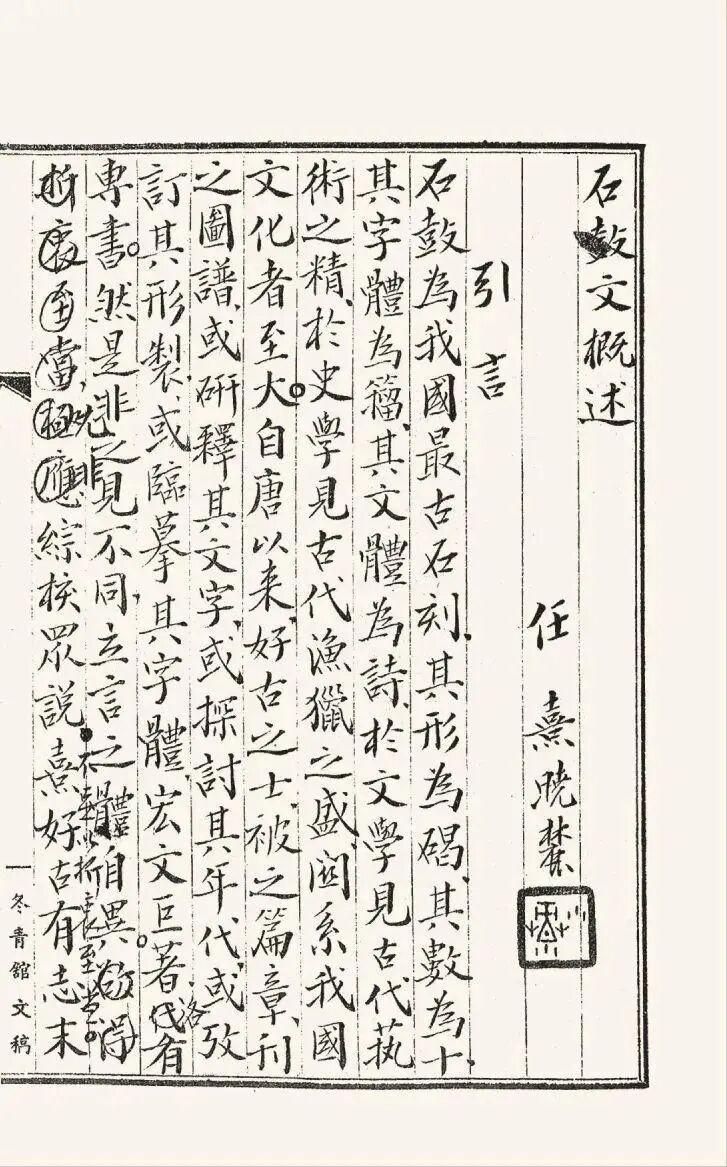 石鼓文概述
任熹曉
引言
石鼓為我國最古石刻、其形為碣、其數為十、
其字體為籀、其文體為詩、於文學見古代蓺
術之精、於史學見古代漁獵之盛、關系我國
文化者至大。自唐以来、好古之士、被之篇章、刊
之圖譜、或研釋其文字、或探討其年代、或攷
訂其形製、或臨摹其字體、宏文巨著、代有
專書。然是非之見不同、立言之體自異。欲得
折衷至當、極應綜核眾說熹好古有志末
一
冬青館文稿